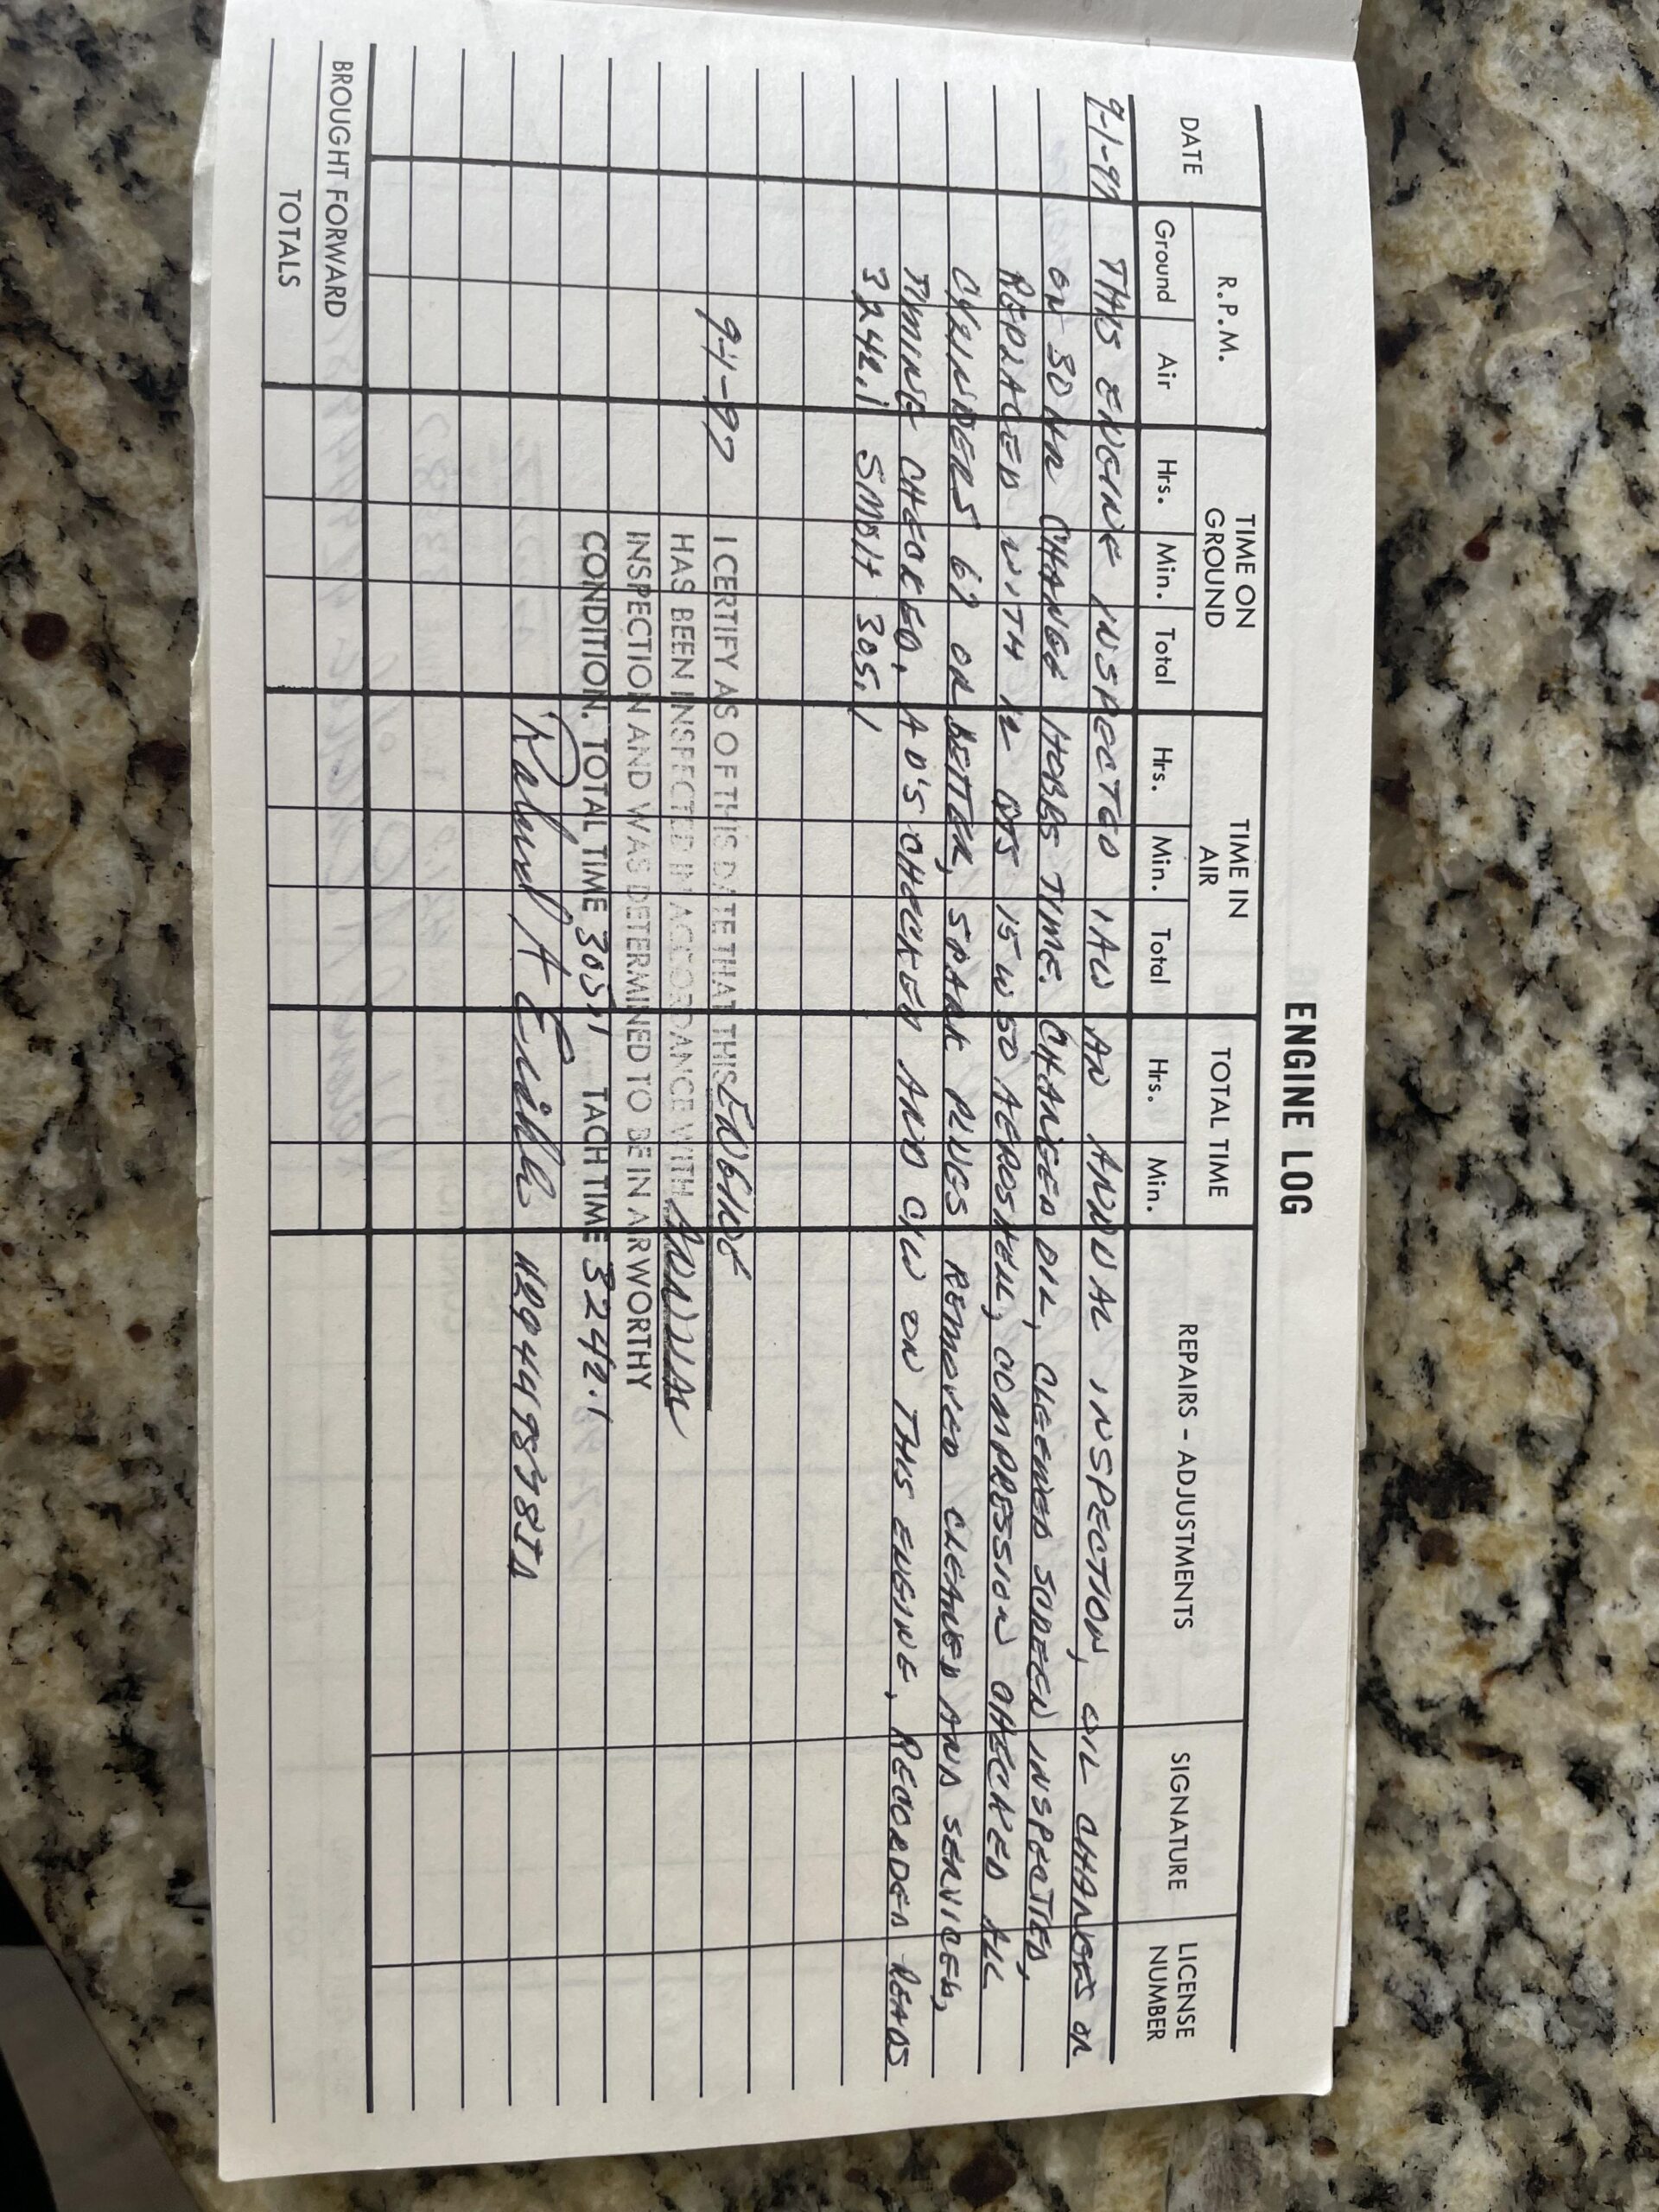 ENGINE LOG
DATE R.P.M. TIME ON GROUND TIME IN AIR TOTAL TIME REPAIRS – ADJUSTMENTS SIGNATURE LICENSE NUMBER
Ground Air Hrs. Min. Total Hrs. Min. Total Hrs. Min.
9-1-97 THIS ENGINE INSPECTED IAW AN ANNUAL INSPECTION, OIL CHANGES ON
ON 30 HR CHANGE HOBBS TIME. CHANGED OIL, CLEENED SCREEN INSPECTED,
REPLACED WITH 12 QTS 15W50 AEROSHELL, COMPRESSION CHECKED ALL
CYLINDERS 67 OR BETTER, SPARK PLUGS REMOVED CLEANED AND SERVICED,
TIMING CHECKED, AD'S CHECKED AND C/W ON THIS ENGINE, RECORDER READS
3242.1 SMOH 305.1
9-1-97 I CERTIFY AS OF THIS DATE THAT THIS ENGINE
HAS BEEN INSPECTED IN ACCORDANCE WITH ANNUAL
INSPECTION AND WAS DETERMINED TO BE IN AIRWORTHY
CONDITION. TOTAL TIME TACH TIME 3242.1
A
BROUGHT FORWARD
TOTALS